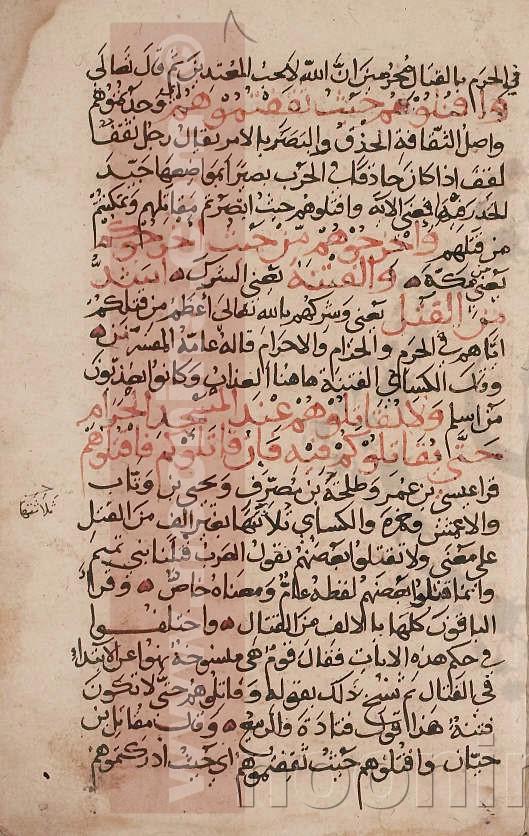 ٨
في الحرم بالقتال محرمين ان الله لا يحب المعتدين ثم قال تعالى
واقتلوهم حيث ثقفتموهم وجدتموهم
واصل الثقافة الحذق والبصر بالامر يقال رجل ثقف
لقف اذا كان حاذقا في الحرب بصيرا بمواضعها جيد
الحذر فيه فمعنى الآية واقتلوهم حيث ابصرتم مقاتلهم وتمكنتم
من قتلهم واخرجوهم من حيث اخرجوكم
يعني من مكة والفتنة يعني الشرك اشد
من القتل يعني وشركهم بالله تعالى أعظم من قتلكم
اياهم في الحرم والحرام والاحرام قاله عامة المفسرين
وقال الكسائي الفتنة هاهنا العذاب وكانوا يعذبون
من اسلم ولا تقاتلوهم عند المسجد الحرام
حتى يقاتلوكم فيه فان قاتلوكم فاقتلوهم
قرا عيسى بن عمر وطلحة بن مصرف ويحيى بن وثاب
والاعمش وحمزة والكسائي ثلاثتها بغير الف من القتل
ثلاثتها
على معنى ولا تقتلوا بعضهم يقول العرب قتلنا بني تميم
وانما قتلوا بعضهم لفظه عام ومعناه خاص وقرأ
الباقون كلها بالالف من القتال واختلفوا
في حكم هذه الايات فقال قوم هي منسوخة نهوا عن الابتداء
في القتال ثم نسخ ذلك بقوله وقاتلوهم حتى لا تكون
فتنة هذا قول قتادة والربيع وقال مقاتل بن
حيان واقتلوهم حيث ثقفتموهم اي حيث ادركتموهم
noorin